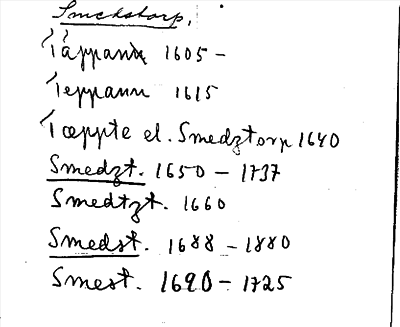 Smedstorp,
Täppann 1605 -
Teppann 1615
Tœppte el. Smedztorp 1640
Smedzt. 1650 - 1737
Smedtzt. 1660
Smedst. 1688 - 1880
Smest. 1690 - 1725